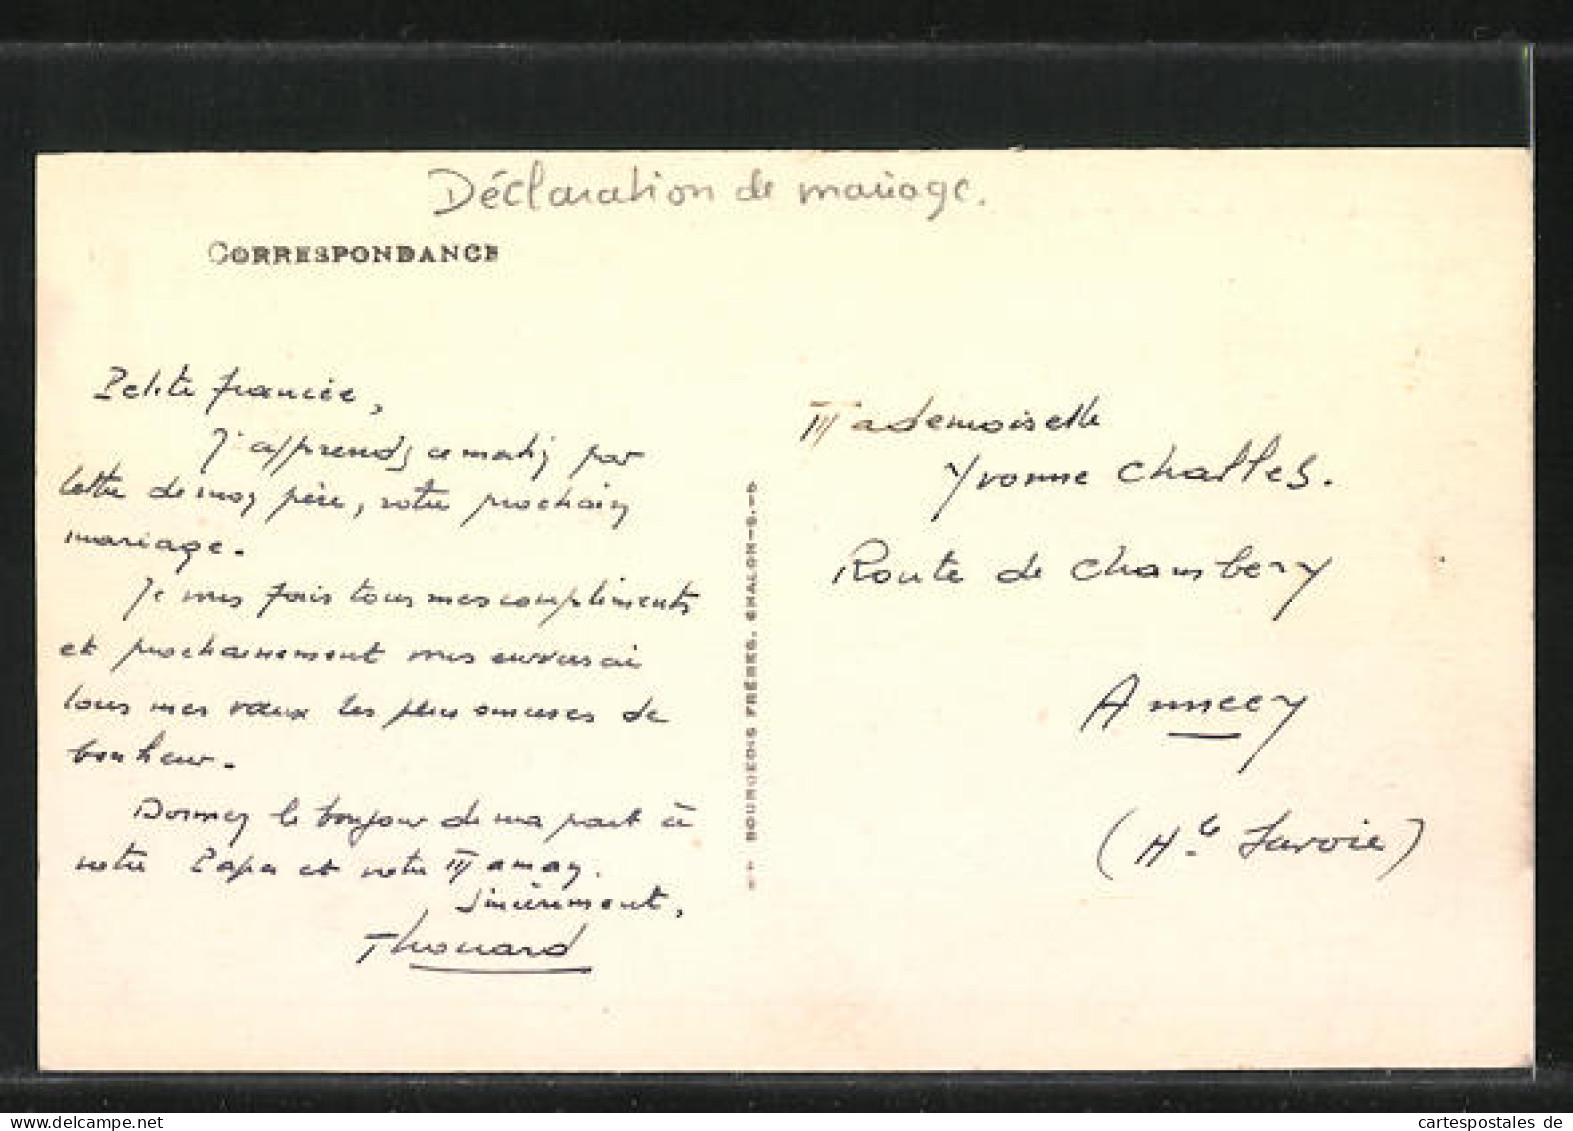 Déclaration de mariage.
CORRESPONDANCE
Petite fiancée,
J'apprends, ce matin par
lettre de mon père, votre prochain
mariage.
Je vous fais tous mes compliments
et prochainement vous enverrai
tous mes vœux les plus sincères de
bonheur.
Donnez le bonjour de ma part à
votre Papa et votre Maman.
Sincèrement,
Thouard
BOURGEOIS FRÈRES, CHALON-S.-S
Mademoiselle
Yvonne Challes.
Route de Chambery
Annecy
(Hte Savoie)
cartespostales de